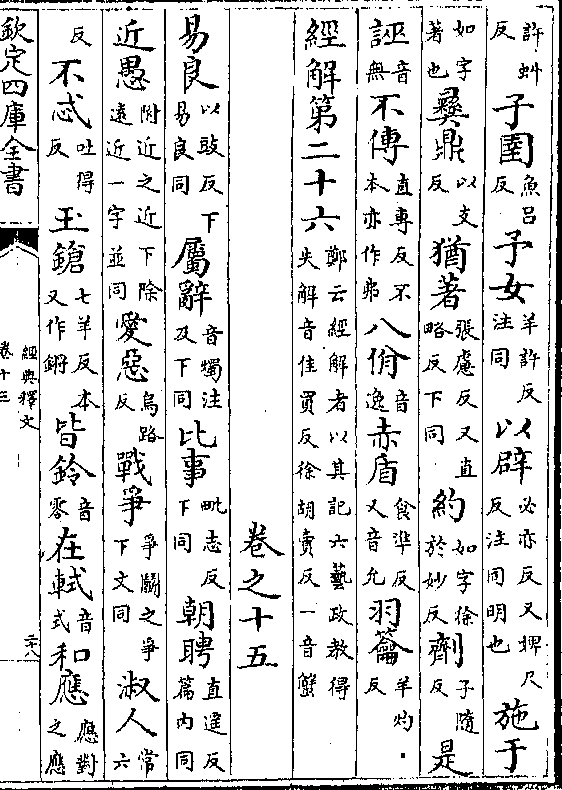 許蚪反子圉魚呂反予女羊許反注同以辟必亦反又婢尺反注同明也施于
如字著也彞鼎以支反猶著張慮反又直略反下同約如字徐於妙反劑子隨反是
誣音無不傳直專反不本亦作弗八佾音逸赤盾食準反又音允羽籥羊灼反
經解第二十六鄭云經解者以其記六藝政教得失解音佳買反徐胡賣反一音蟹
卷之十五
易良以豉反下易良同屬辭音燭注及下同比事毗志反下同朝聘直遥反篇内同
近愚附近之近下除遠近一字並同愛惡烏路反戰爭爭鬭之爭下文同淑人常六
反不忒吐得反玉鎗七羊反本又作鏘皆鈴音零在軾音式和應應對之應
欽定四庫全書
經典釋文
卷十三
二十八